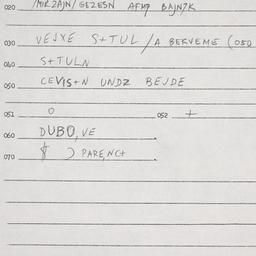 020 /MIRZAJN/GEZESN AFM7 BAJN7K
030 VEJXE S+TUL/A BERVEME (050
040 S+TULN
050 CEVIS+N UNDZ BEJDE
051 O 052 +
060 DUBO,VE
070 $ ) PARENC+